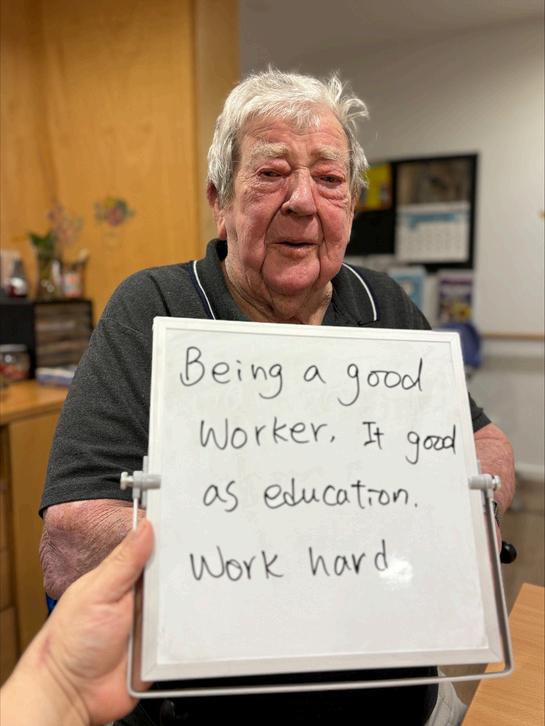 Being a good
Worker. It good
as education.
Work hard